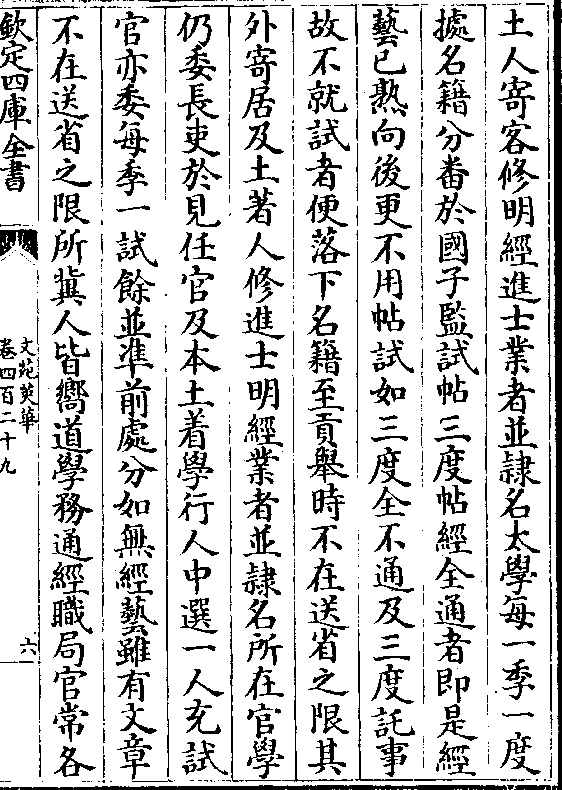 土人寄客修明經進士業者並隷名太學每一季一度
據名籍分番於國子監試帖三度帖經全通者即是經
藝已熟向後更不用帖試如三度全不通及三度託事
故不就試者便落下名籍至貢舉時不在送省之限其
外寄居及土著人修進士明經業者並隷名所在官學
仍委長吏於見任官及本土着學行人中選一人充試
官亦委每季一試餘並准前處分如無經藝雖有文章
不在送省之限所冀人皆嚮道學務通經職局官常各
欽定四庫全書
文苑英華
卷四百二十九
六